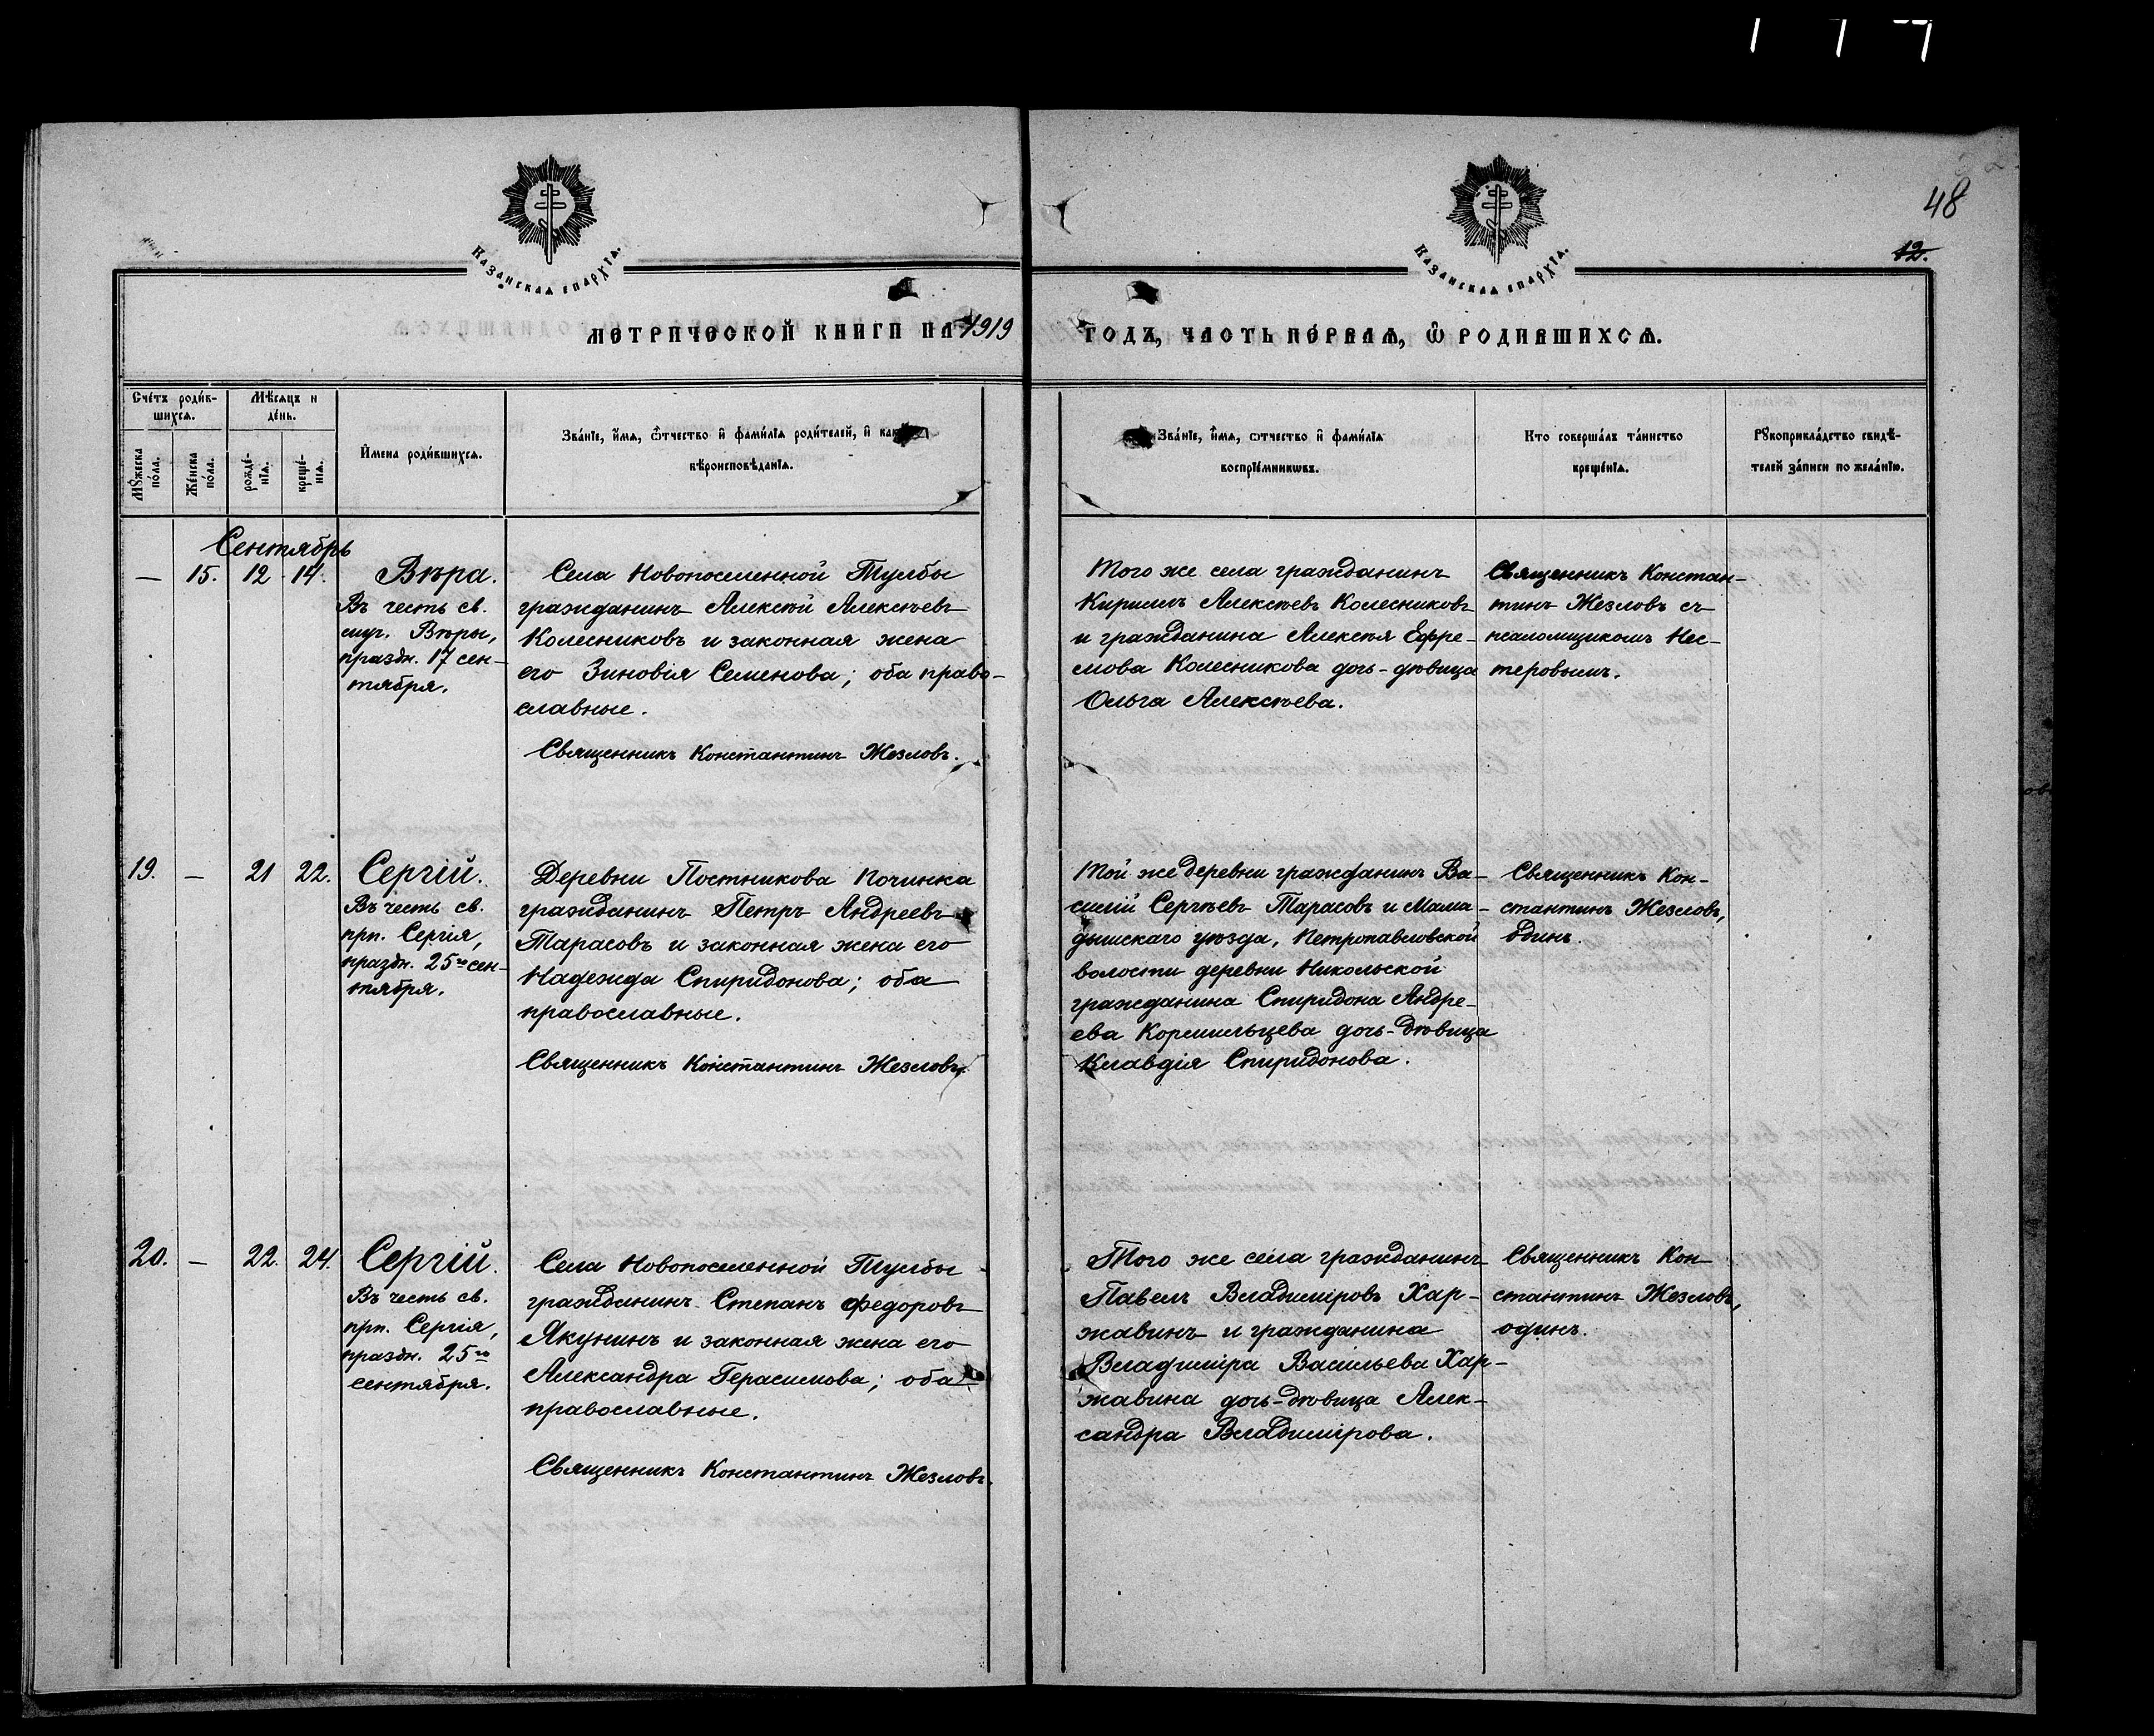 48
12.
Казанская епархїѧ.
Казанская епархїѧ.
МЕТРИЧЕСКОЙ КНИГИ НА 1919
ГОДЪ, ЧАСТЬ ПЕРВАѦ, Ѽ РОДИВШИХСѦ.
Счетъ роди́в-
шихсѧ.
Мѣсѧцъ и
де́нь.
Мꙋ́жеска
по́ла.
Же́нска
по́ла.
рожде́-
нїѧ.
креще́-
нїѧ.
И҆мена роди́вшихсѧ.
Зва́нїе, и҆́мѧ, ѻ҆́тчество и҆ фами́лїѧ роди́телей, и҆
вѣроисповѣ́данїѧ.
Зва́нїе, и҆́мѧ, ѻтчество и҆ фами́лїѧ
воспрїе́мникѡвъ.
Кто соверша́лъ та́инство
креще́нїѧ.
Рꙋкоприкла́дство свидѣ́-
телей за́писи по жела́нїю.
Сентябрь
— 15. 12 14. Вѣра.
Въ честь св.
муч. Вѣры,
праздн. 17 сен-
тября.
Села Новопоселенной Тулбы
гражданинъ Алексѣй Алексѣевъ
Колесниковъ и законная жена
его Зиновія Семенова; оба право-
славные.
Священникъ Константинъ Жезловъ.
Того же села гражданинъ
Кириллъ Алексѣевъ Колесниковъ
и гражданина Алексѣя Ефре-
мова Колесникова дочь-дѣвица
Ольга Алексѣева.
Священникъ Констан-
тинъ Жезловъ съ
псаломщикомъ Нес-
теровымъ.
19. — 21 22. Сергій.
Въ честь св.
прп. Сергія,
праздн. 25го сен-
тября.
Деревни Постникова Починка
гражданинъ Петръ Андреевъ
Тарасовъ и законная жена его
Надежда Спиридонова; оба
православные.
Священникъ Константинъ Жезловъ.
Той же деревни гражданинъ Ва-
силій Сергѣевъ Тарасовъ и Мама-
дышскаго уѣзда, Петропавловской
волости деревни Никольской
гражданина Спиридона Андре-
ева Кормильцева дочь-дѣвица
Клавдія Спиридонова.
Священникъ Кон-
стантинъ Жезловъ,
одинъ.
20. — 22. 24. Сергій.
Въ честь св.
прп. Сергія,
праздн. 25го
сентября.
Села Новопоселенной Тулбы
гражданинъ Степанъ Федоровъ
Якунинъ и законная жена его
Александра Герасимова; оба
православные.
Священникъ Константинъ Жезловъ.
Того же села гражданинъ
Павелъ Владиміровъ Хар-
жавинъ и гражданина
Владиміра Васильева Хар-
жавина дочь-дѣвица Алек-
сандра Владимірова.
Священникъ Кон-
стантинъ Жезловъ,
одинъ.